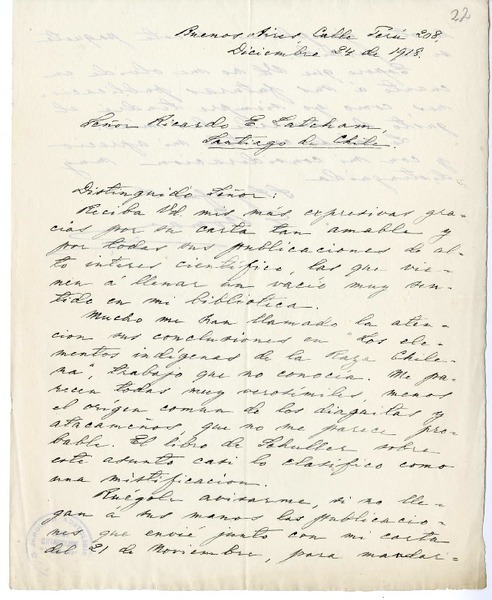 22
Buenos Aires, Calle Perú 208,
Diciembre 24 de 1918.
Señor Ricardo E. Latcham,
Santiago de Chile.
Distinguido Señor:
Reciba Vd mis más expresivas gra-
cias por su carta tan amable y
por todas sus publicaciones de al-
to interes científico, las que vie-
nen á llenar un vacío muy sen-
tido en mi biblioteca.
Mucho me han llamado la aten-
cion sus conclusiones en "Los ele-
mentos indígenas de la Raza Chile-
na", trabajo que no conocía. Me pa-
recen todas muy verosímiles, menos
el orígen comun de los diaguitas y
atacameños, que no me parece pro-
bable. El libro de Schuller sobre
este asunto casi lo clasifico como
una mistificacion.
Ruegole avisarme, si no lle-
gan á sus manos las publicacio-
nes que envié junto con mi carta
del 21 de Noviembre, para mandar-